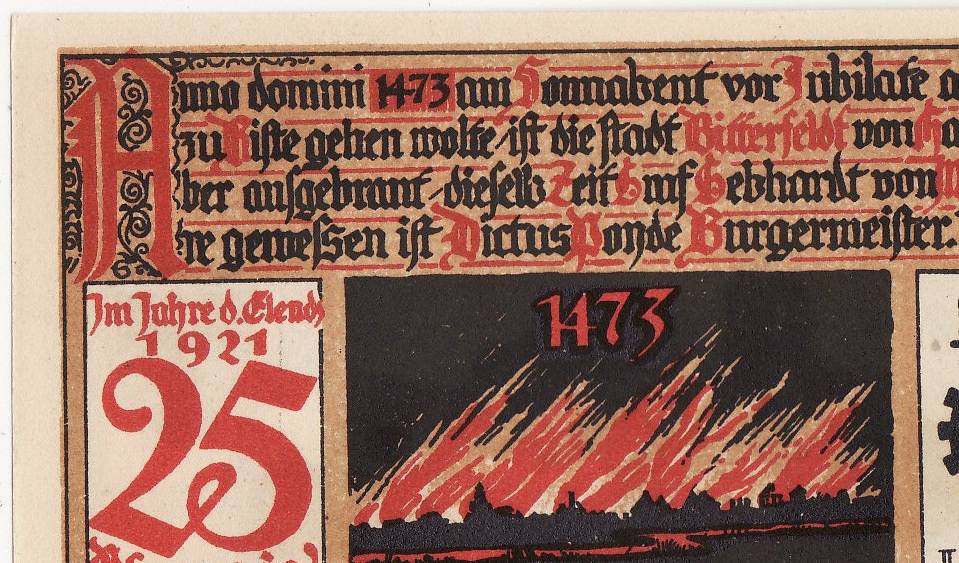 Anno domini 1473 am Sonnabent vor Jubilate
zu Biste gehen wolte ist die stadt Bitterfeldt von
ber ausgebrant dieselb Zeit S auf Gebhardt von
re gemessen ist Dictus Ponde Burgermeister.
Im Jahre d. Elends
1921
25
1473